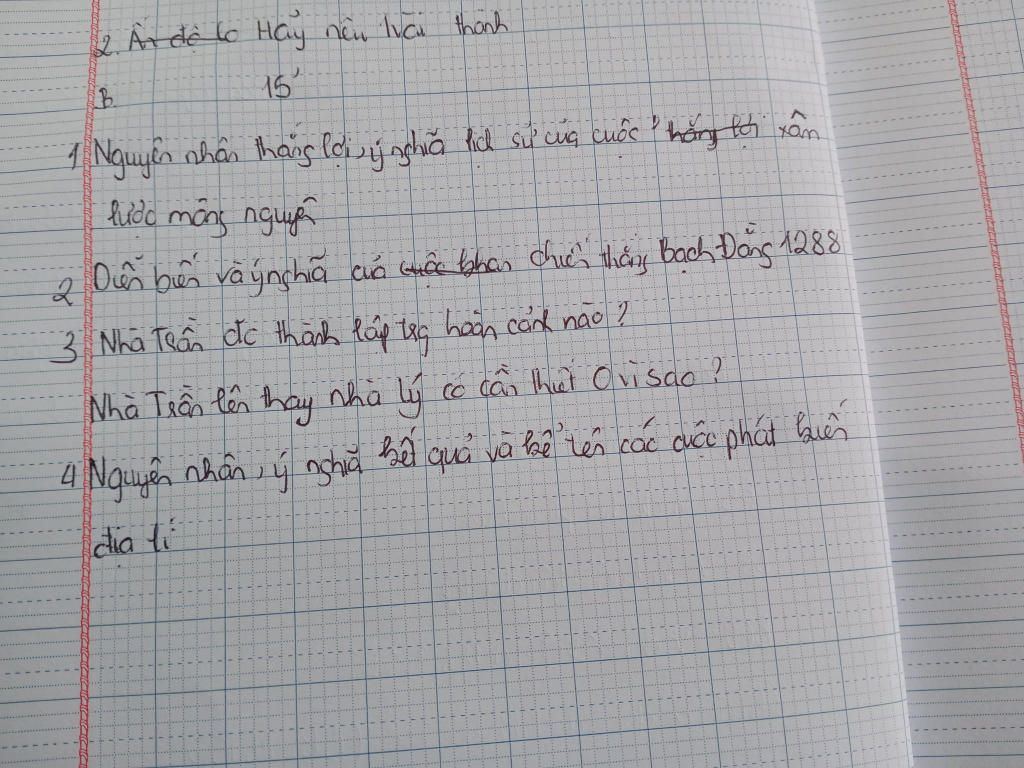 2. Ấn độ to Hãy nêu vài thành
B. 15'
1 Nguyên nhân thắng lợi, ý nghĩa lịch sử của cuộc thắng lợi xâm
lược mông nguyên
2 Diễn biến và ý nghĩa của cuộc chiến thắng Bạch Đằng 1288
3 Nhà Trần đc thành lập trg hoàn cảnh nào?
Nhà Trần lên thay nhà lý có cần thiết 0 vì sao?
4 Nguyên nhân, ý nghĩa kết quả và kể tên các cuộc phát kiến
địa lí